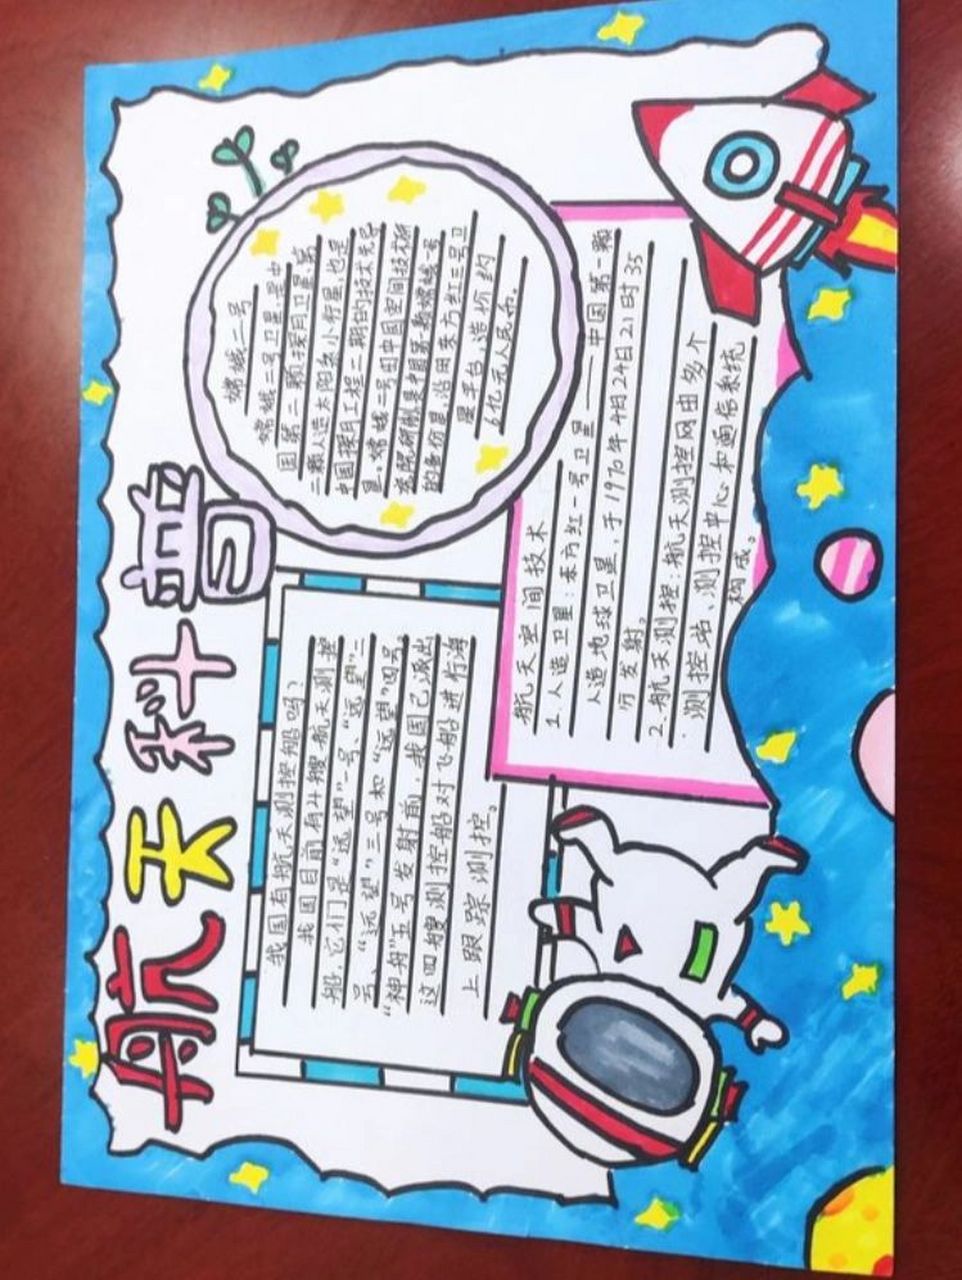 航天科普
我国有航天测控船吗?
我国目前有4艘航天测控
船,它们是“远望”一号、“远望”二
号、“远望”三号和“远望”四号。
“神舟”五号发射前,我国已派出
这四艘测控船对飞船进行海
上跟踪测控。
嫦娥二号
嫦娥二号卫星是中
国第二颗探月卫星、第
二颗人造太阳系小行星,也是
中国探月工程二期的技术先导
星。嫦娥二号由中国空间技术研
究院研制,是中国第一颗嫦娥一号
的备份星,沿用东方红三号卫
星平台,造价约
6亿元人民币。
航天空间技术
1.人造卫星:东方红一号卫星——中国第一颗
人造地球卫星,于1970年4月24日21时35
分发射。
2.航天测控:航天测控网由多个
测控站、测控中心和通信系统
构成。